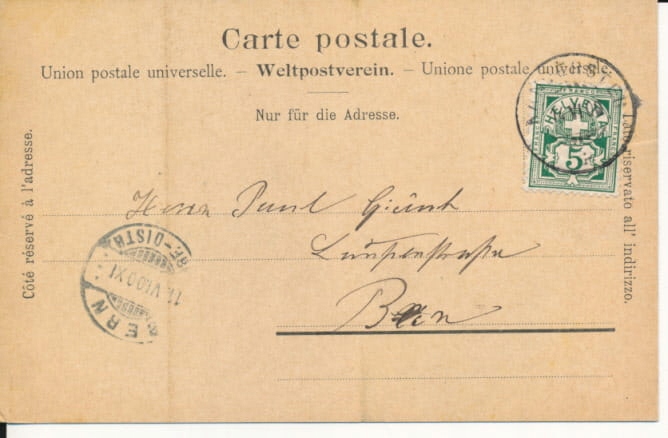 Carte postale.
Union postale universelle. – Weltpostverein. – Unione postale universale.
Nur für die Adresse.
Côté réservé à l'adresse.
Lato riservato all' indirizzo.
HELVETIA
5
Herrn Paul
Bern
BERN
BR.-DISTR.
VI.00 XI